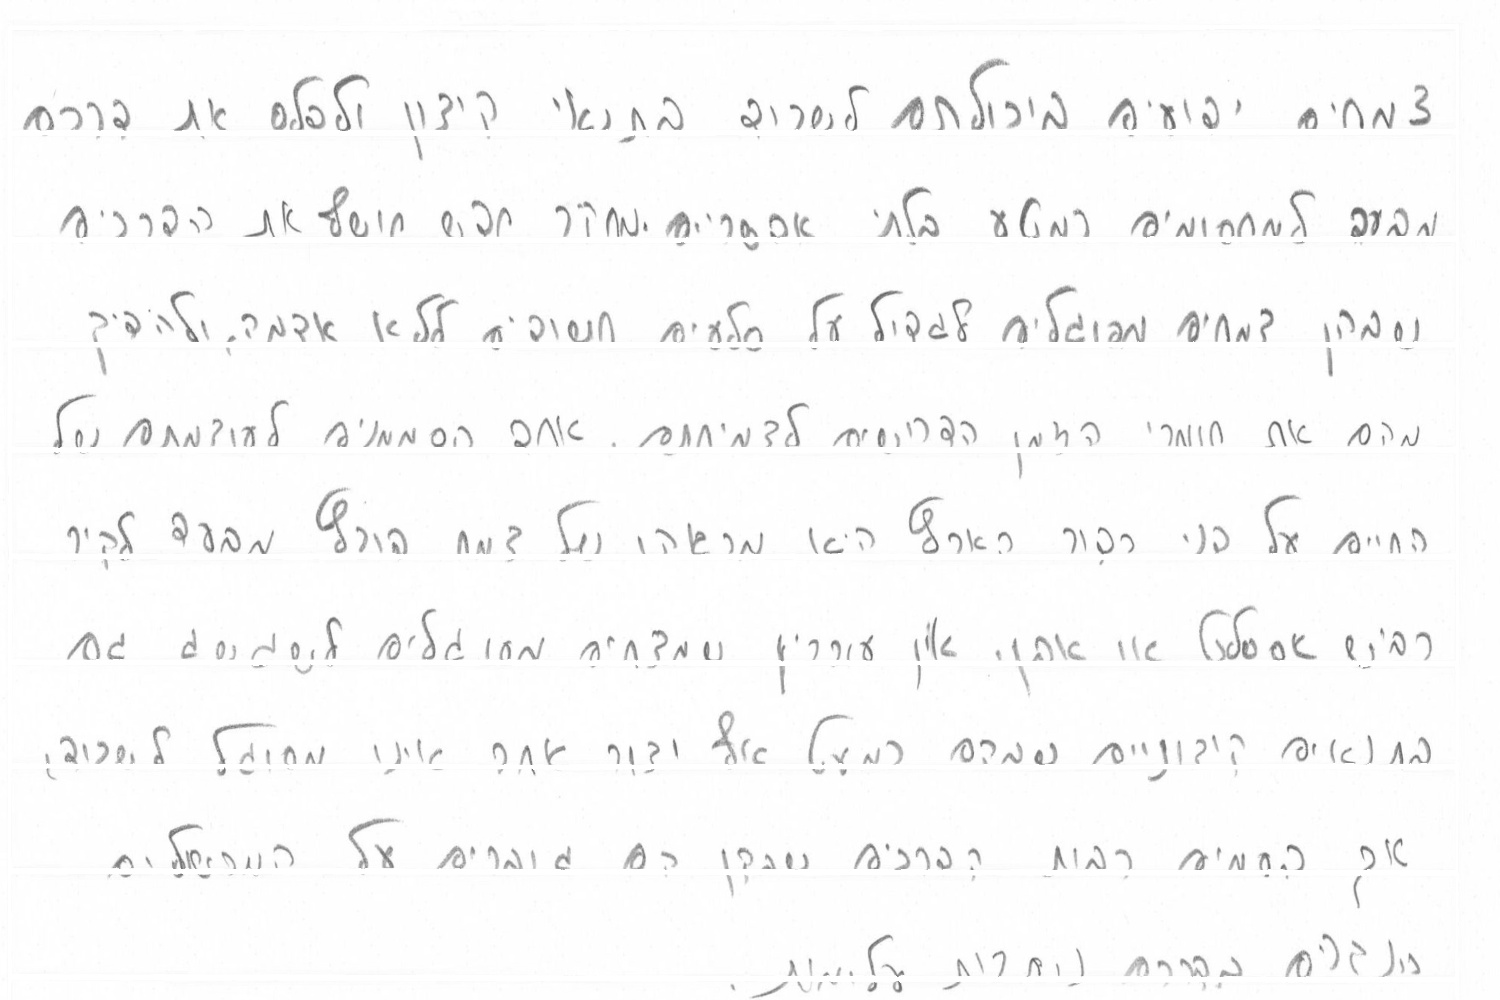 צמחים ידועים ביכולתם לשרוד בתנאי קיצון ולפלס את דרכם
מבעד למחסומים כמעט בלתי אפשריים. מחקר חדש חושף את הדרכים
שבהן צמחים מסוגלים לגדול על סלעים חשופים ללא אדמה, ולהפיק
מהם את חומרי המזון הדרושים לצמיחתם. אחד הסממנים לעוצמתם של
החיים על פני כדור הארץ היא מראהו של צמח פורץ מבעד לקיר
כביש אספלט או אבן. אין עוררין שצמחים מסוגלים לשגשג גם
בתנאים קיצוניים שבהם כמעט אף יצור אחר אינו מסוגל לשרוד,
אך פעמים רבות הדרכים שבהן הם גוברים על המכשולים
בדרכם נותרות עלומות.